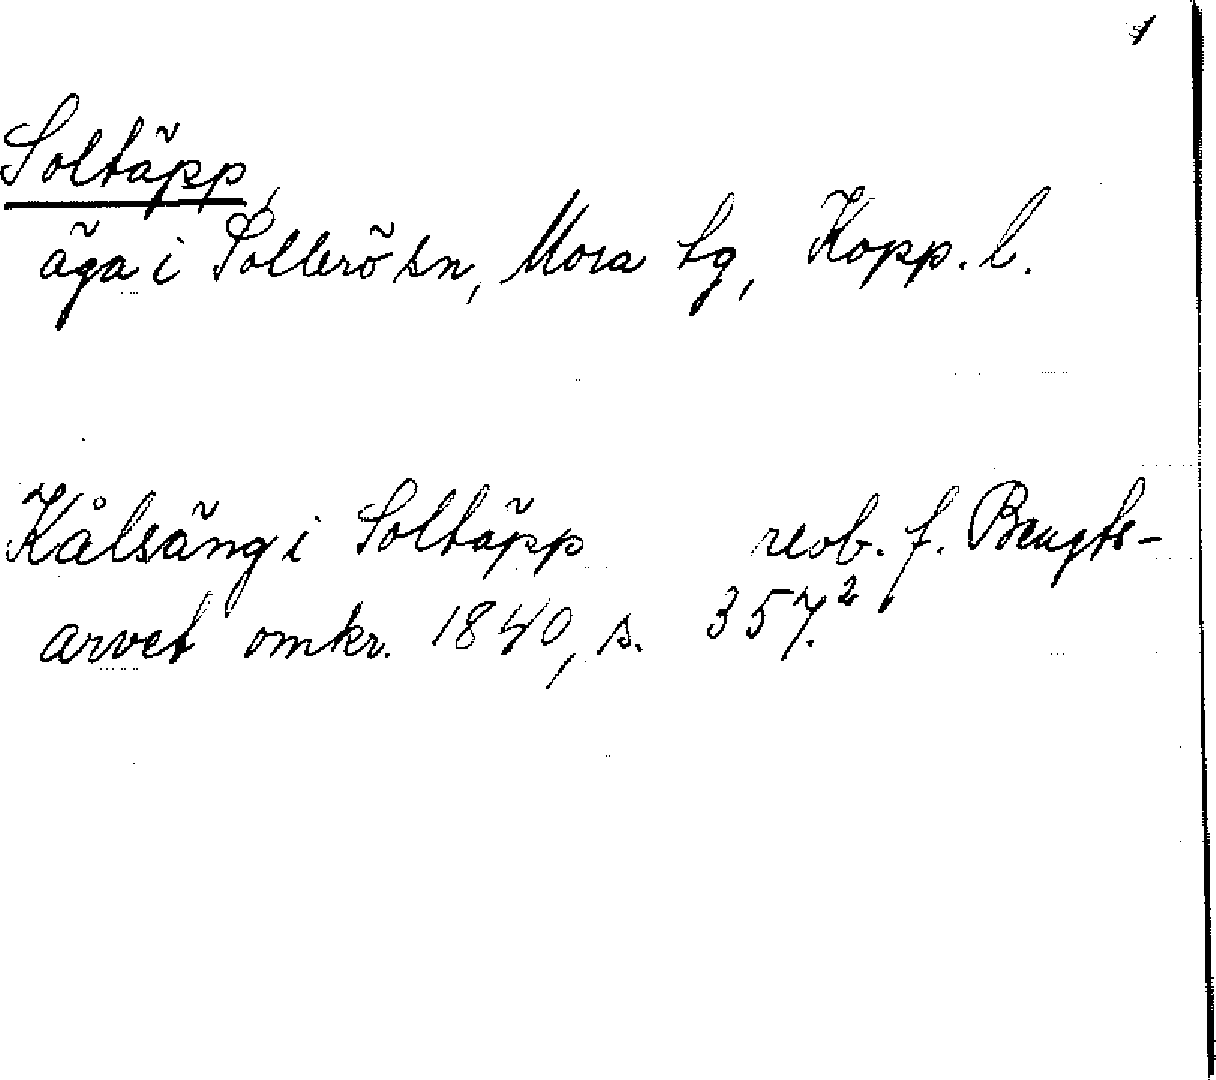 1
Soltäpp,
äga i Sollerö sn, Mora tg, Kopp. l.
Kålsäng i Soltäpp reob. f. Bengts-
arvet omkr. 1840, s. 357.²